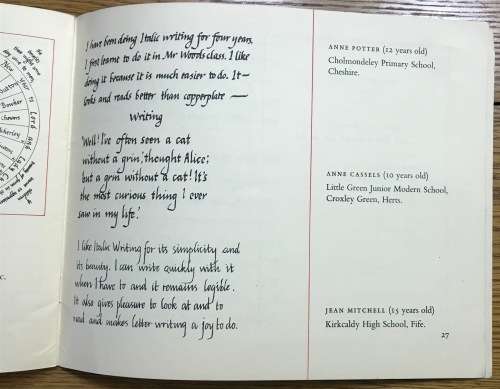 I have been doing Italic writing for four years,
I first learnt to do it in Mr Woods class. I like
doing it because it is much easier to do. It –
looks and reads better than copperplate —
writing
'Well! I've often seen a cat
without a grin,' thought Alice;
but a grin without a cat! It's
the most curious thing I ever
saw in my life.'
I like Italic Writing for its simplicity and
its beauty. I can write quickly with it
when I have to and it remains legible.
It also gives pleasure to look at and to
read and makes letter writing a joy to do.
ANNE POTTER (12 years old)
Cholmondeley Primary School,
Cheshire.
ANNE CASSELS (10 years old)
Little Green Junior Modern School,
Croxley Green, Herts.
JEAN MITCHELL (15 years old)
Kirkcaldy High School, Fife.
27